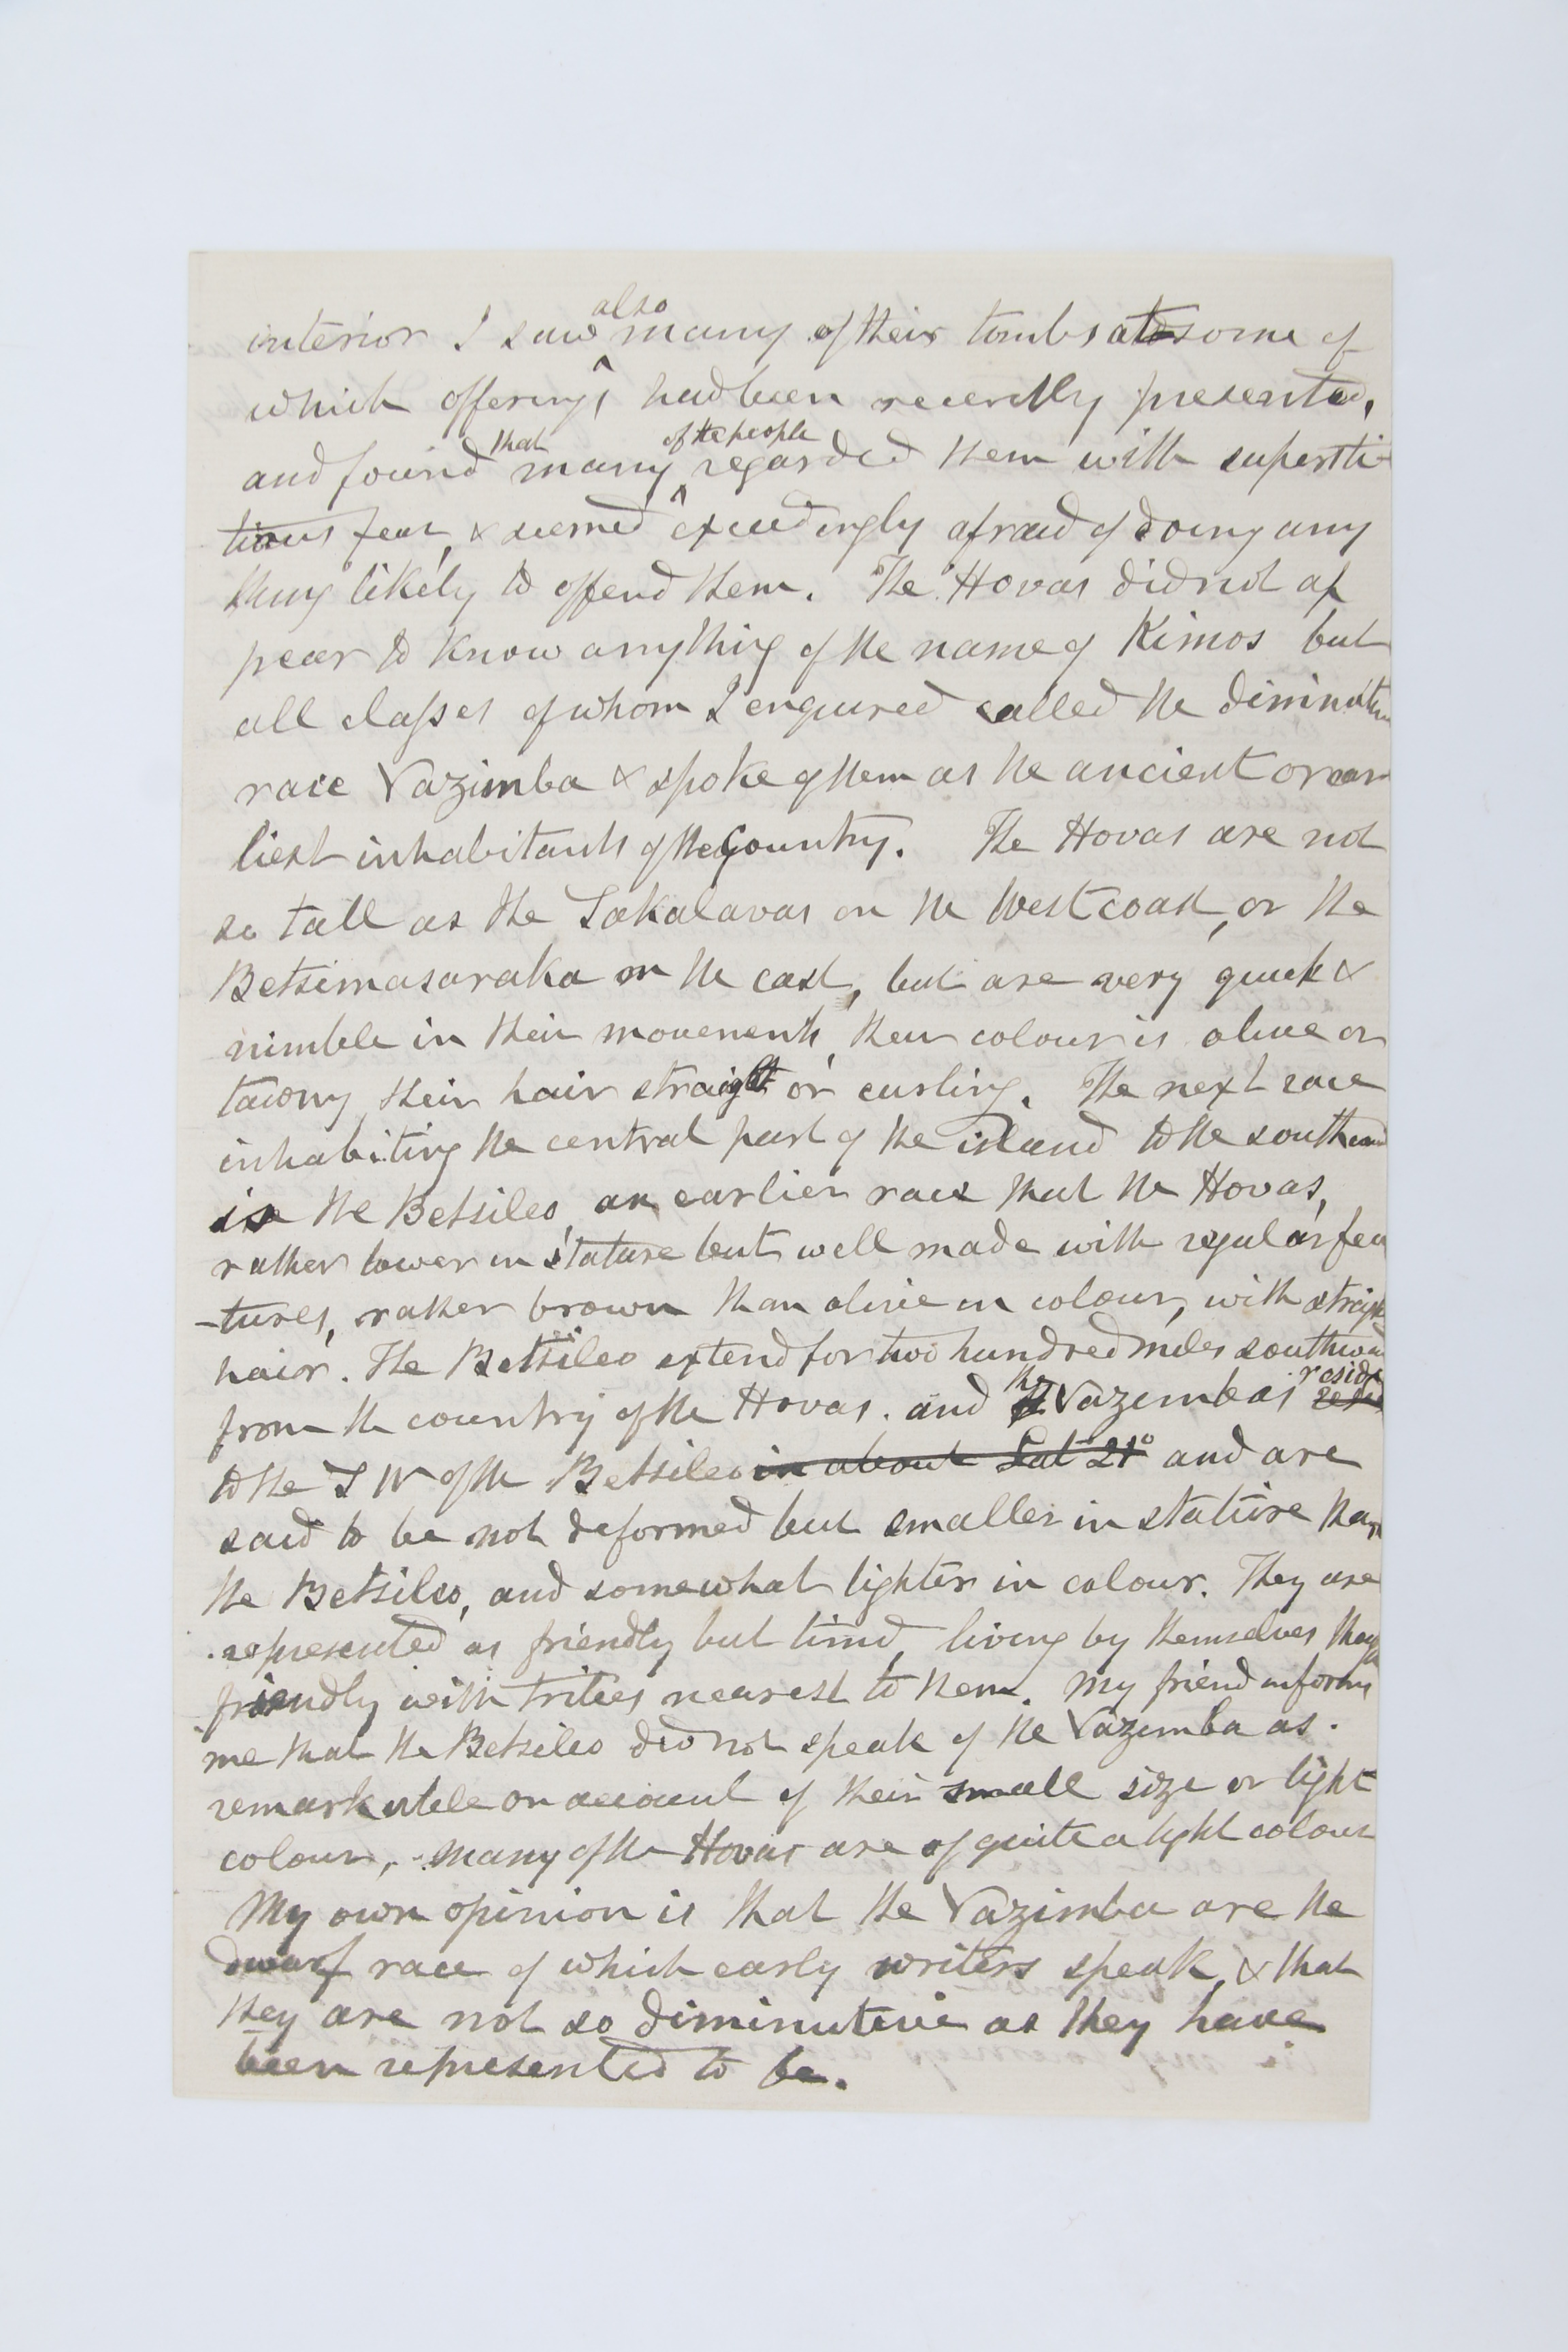 interior I saw also many of their tombs at some of
which offerings had been recently presented,
and found that many of the people regarded them with supersti-
tious fear, & seemed exceedingly afraid of doing any
thing likely to offend them. The Hovas did not ap
pear to know anything of the name of Kimos but
all classes of whom I enquired called the diminutive
race Vazimba & spoke of them as the ancient or ear
liest inhabitants of the Country. The Hovas are not
so tall as the Sakalavas on the West coast, or the
Betsimasaraka on the east, but are very quick &
nimble in their movements, their colour is olive or
tawny, their hair straight or curling. The next race
inhabiting the central part of the island to the southward
is the Betsileo, an earlier race that the Hovas,
rather lower in stature but well made with regular fea
-tures, rather brown than olive in colour, with straight
hair. The Betsileo extend for two hundred miles southward
from the country of the Hovas. and the Vazimbas reside
to the S W of the Betsileo in about Lat 21° and are
said to be not deformed but smaller in stature than
the Betsileo, and somewhat lighter in colour. They are
represented as friendly but timid, living by themselves though
friendly with tribes nearest to them. My friend informs
me that the Betsileo did not speak of the Vazimba as
remarkable on account of their small size or light
colour, - many of the Hovas are of quite a light colour
My own opinion is that the Vazimba are the
dwarf race of which early writers speak, & that
they are not so diminutive as they have
been represented to be.